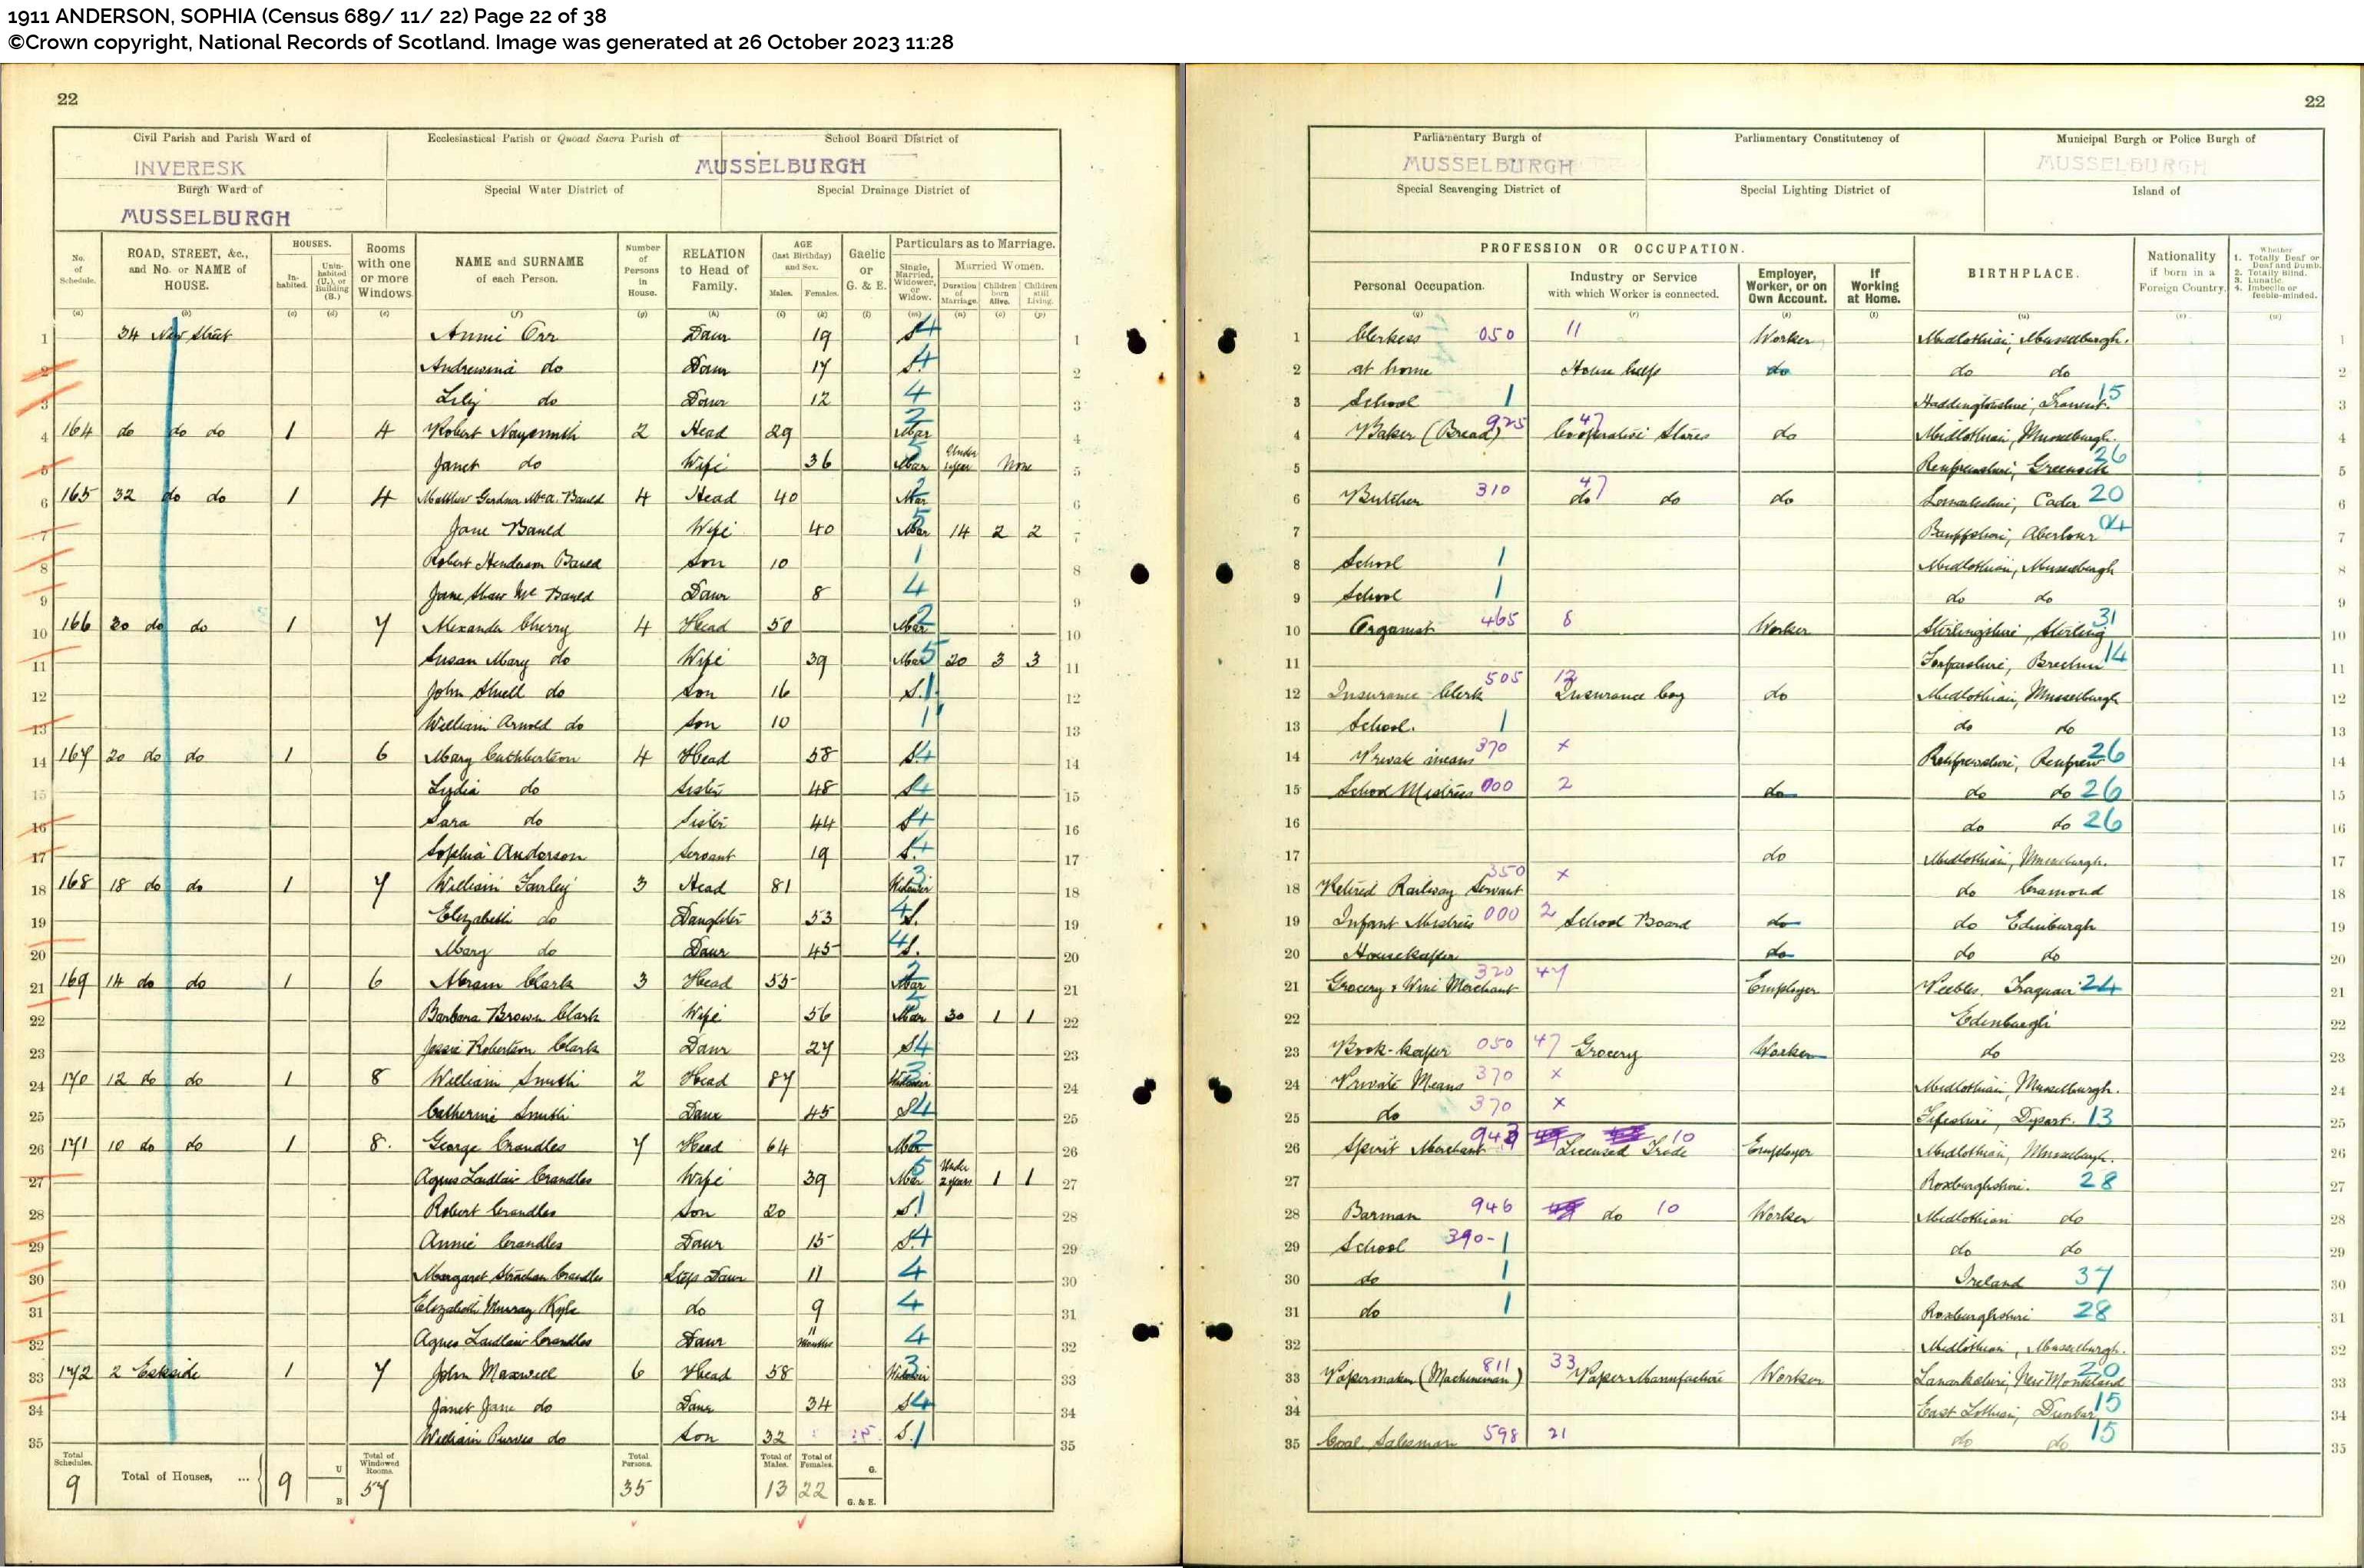 1911 ANDERSON, SOPHIA (Census 689/ 11/ 22) Page 22 of 38
©Crown copyright, National Records of Scotland. Image was generated at 26 October 2023 11:28
22
Civil Parish and Parish Ward of Ecclesiastical Parish or Quoad Sacra Parish of School Board District of
INVERESK MUSSELBURGH
Burgh Ward of Special Water District of Special Drainage District of
MUSSELBURGH
No. of Schedule. ROAD, STREET, &c., and No. or NAME of HOUSE. HOUSES. Inhabited. Uninhabited (U.), or Building (B.) Rooms with one or more Windows NAME and SURNAME of each Person. Number of Persons in House. RELATION to Head of Family. AGE (last Birthday) and Sex. Males. Females. Gaelic or G. & E. Particulars as to Marriage. Single, Married, Widower, or Widow. Married Women. Duration of Marriage. Children born Alive. Children still Living.
(a) (b) (c) (d) (e) (f) (g) (h) (i) (k) (l) (m) (n) (o) (p)
1 34 New Street Annie Orr Daur 19 S 4 1
2 Andrewina do Daur 17 S 4 2
3 Lily do Daur 12 4 3
4 164 do do do 1 4 Robert Naysmith 2 Head 29 Mar 2 4
5 Janet do Wife 36 Mar Under 1 year None 5
6 165 32 do do 1 4 Matthew Gardner Bauld 4 Head 40 Mar 2 6
7 Jane Bauld Wife 40 Mar 5 14 2 2 7
8 Robert Henderson Bauld Son 10 1 8
9 Jane Shaw Mc Bauld Daur 8 4 9
10 166 do do 1 7 Alexander Cherry 4 Head 50 Mar 2 10
11 Susan Mary do Wife 39 Mar 5 20 3 3 11
12 John Shiell do Son 16 S. 1 12
13 William Arnold do Son 10 1 13
14 167 20 do do 1 6 Mary Cuthbertson 4 Head 58 S 4 14
15 Lydia do Sister 48 S 4 15
16 Sara do Sister 44 S 4 16
17 Sophia Anderson Servant 19 S. 4 17
18 168 18 do do 1 7 William Fairley 3 Head 81 Widower 3 18
19 Elizabeth do Daughter 53 4 S. 19
20 Mary do Daur 45 4 S. 20
21 169 14 do do 1 6 Abram Clark 3 Head 55 Mar 2 21
22 Barbara Brown Clark Wife 56 Mar 5 30 1 1 22
23 Jessie Robertson Clark Daur 27 S 4 23
24 170 12 do do 1 8 William Smith 2 Head 87 Widower 3 24
25 Catherine Smith Daur 45 S 4 25
26 171 10 do do 1 8. George Crandles 7 Head 64 Mar 2 26
27 Agnes Laidlaw Crandles Wife 39 Mar 5 Under 2 years 1 1 27
28 Robert Crandles Son 20 S 1 28
29 Annie Crandles Daur 15 S. 4 29
30 Margaret Strachan Crandles Step Daur 11 4 30
31 Elizabeth Murray Kyle do 9 4 31
32 Agnes Laidlaw Crandles Daur 11 Months 4 32
33 172 2 Eskside 1 7 John Maxwell 6 Head 58 Widower 3 33
34 Janet Jane do Daur 34 S 4 34
35 William Purves do Son 32 S. 1 35
Total Schedules. 9 Total of Houses, ... 9 U B Total of Windowed Rooms. 57 Total Persons. 35 Total of Males. 13 Total of Females. 22 G. G. & E.
22
Parliamentary Burgh of Parliamentary Constitutency of Municipal Burgh or Police Burgh of
MUSSELBURGH MUSSELBURGH
Special Scavenging District of Special Lighting District of Island of
PROFESSION OR OCCUPATION. Personal Occupation. Industry or Service with which Worker is connected. Employer, Worker, or on Own Account. If Working at Home. BIRTHPLACE. Nationality if born in a Foreign Country. Whether 1. Totally Deaf or Deaf and Dumb. 2. Totally Blind. 3. Lunatic. 4. Imbecile or feeble-minded.
(q) (r) (s) (t) (u) (v) (w)
1 Clerkess 050 11 Worker Midlothian, Musselburgh. 1
2 at home House help do do do 2
3 School 1 Haddingtonshire, Tranent. 15
4 Baker (Bread) 925 47 Cooperative Stores do Midlothian, Musselburgh.
5 Renfrewshire, Greenock 26 5
6 Butcher 310 47 do do do Lanarkshire, Cader 20 6
7 Banffshire, Aberlour 04 7
8 School 1 Midlothian, Musselburgh 8
9 School 1 do do 9
10 Organist 465 8 Worker Stirlingshire, Stirling 31 10
11 Forfarshire, Brechin 14 11
12 Insurance Clerk 505 12 Insurance Coy do Midlothian, Musselburgh 12
13 School. 1 do do 13
14 Private means 370 x Renfrewshire, Renfrew 26 14
15 School Mistress 000 2 do do do 26 15
16 do do 26 16
17 do Midlothian, Musselburgh. 17
18 Retired Railway Servant 350 x do Cramond 18
19 Infant Mistress 000 2 School Board do do Edinburgh 19
20 Housekeeper do do do 20
21 Grocery & Wine Merchant 320 47 Employer Peebles. Traquair 24 21
22 Edinburgh 22
23 Book-keeper 050 47 Grocery Worker do 23
24 Private Means 370 x Midlothian, Musselburgh. 24
25 do 370 x Fifeshire, Dysart. 13 25
26 Spirit Merchant Licensed Trade 10 Employer Midlothian, Musselburgh. 26
27 Roxburghshire. 28 27
28 Barman 946 do 10 Worker Midlothian do 28
29 School 390- 1 do do 29
30 do 1 Ireland 37 30
31 do 1 Roxburghshire 28 31
32 Midlothian, Musselburgh. 32
33 Papermaker (Machineman) 811 33 Paper Manufacture Worker Lanarkshire, New Monkland 20 33
34 East Lothian, Dunbar 15 34
35 Coal Salesman 598 21 do do 15 35